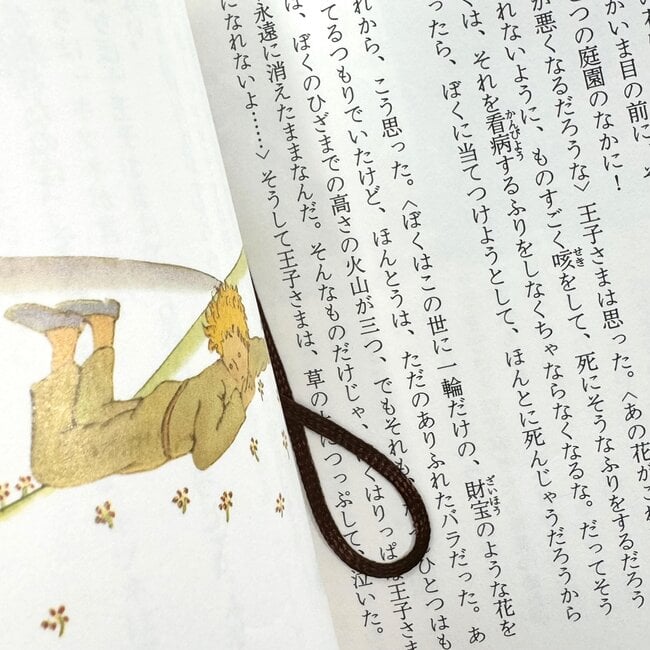 かいま目の前に、そ
つの庭園のなかに！
が悪くなるだろうな〉王子さまは思った。〈あの花がこれ
れないように、ものすごく咳をして、死にそうなふりをするだろう
は、それを看病するふりをしなくちゃならなくなるな。だってそう
ったら、ぼくに当てつけようとして、ほんとに死んじゃうだろうから
れから、こう思った。〈ぼくはこの世に一輪だけの、財宝のような花を
てるつもりでいたけど、ほんとうは、ただのありふれたバラだった。あ
は、ぼくのひざまでの高さの火山が三つ、でもそれも、ひとつはも
永遠に消えたままなんだ。そんなものだけじゃ、くはりっぱ王子さま
になれないよ……〉そうして王子さまは、草のにつっぷして、泣いた。